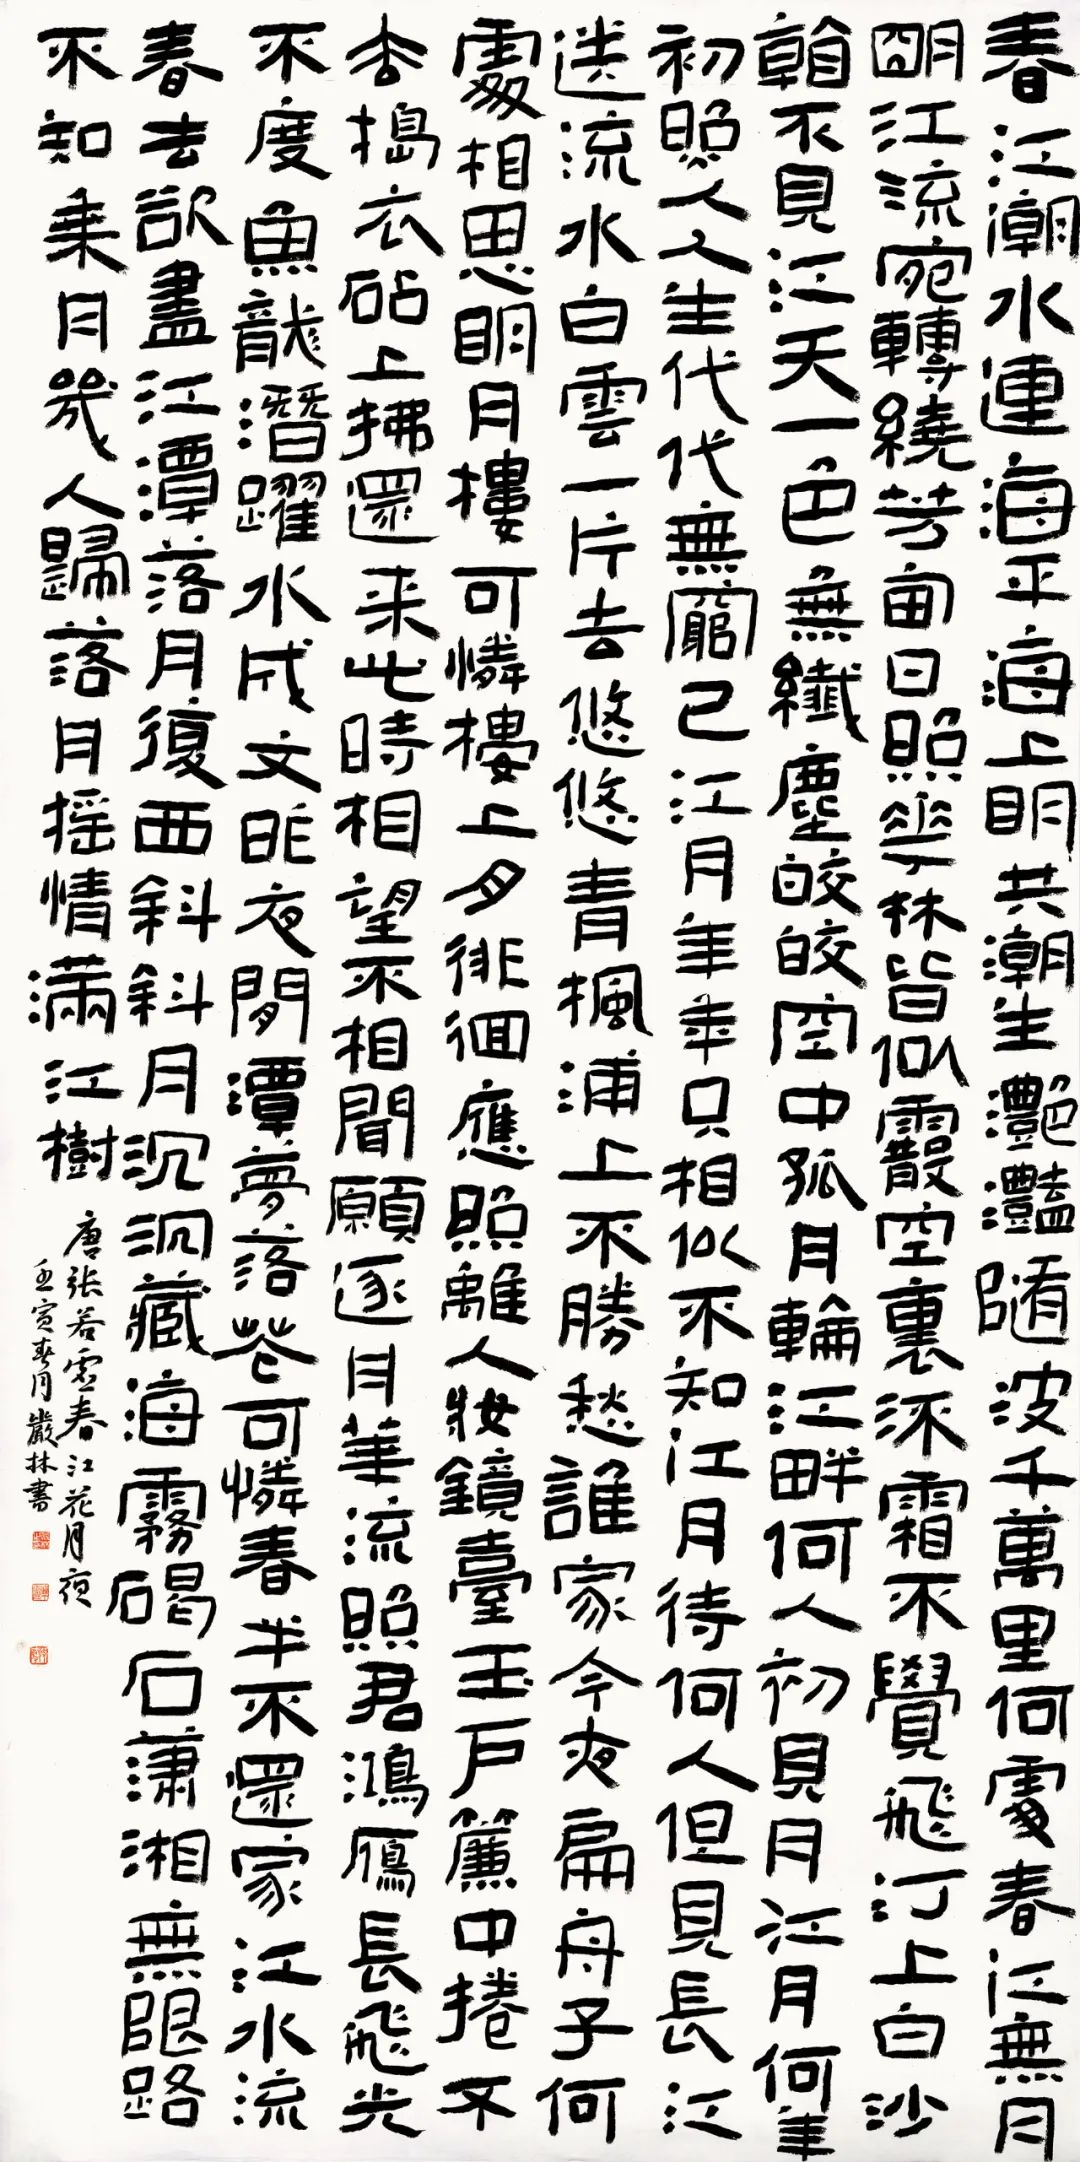 春江潮水連海平海上明共潮生灩灩隨波千萬里何處春江無月
明江流宛轉繞芳甸日照花林皆似霰空裏流霜不覺飛汀上白沙
看不見江天一色無纖塵皎皎空中孤月輪江畔何人初見月江月何年
初照人人生代代無窮已江月年年只相似不知江月待何人但見長江
送流水白雲一片去悠悠青楓浦上不勝愁誰家今夜扁舟子何
處相思明月樓可憐樓上月徘徊應照離人妝鏡臺玉戶簾中捲不
去搗衣砧上拂還來此時相望不相聞願逐月華流照君鴻雁長飛光
不度魚龍潛躍水成文昨夜閒潭夢落花可憐春半不還家江水流
春去欲盡江潭落月復西斜斜月沉沉藏海霧碣石瀟湘無限路
不知乘月幾人歸落月摇情滿江樹
唐張若虛春江花月夜
壬寅春月嚴林書